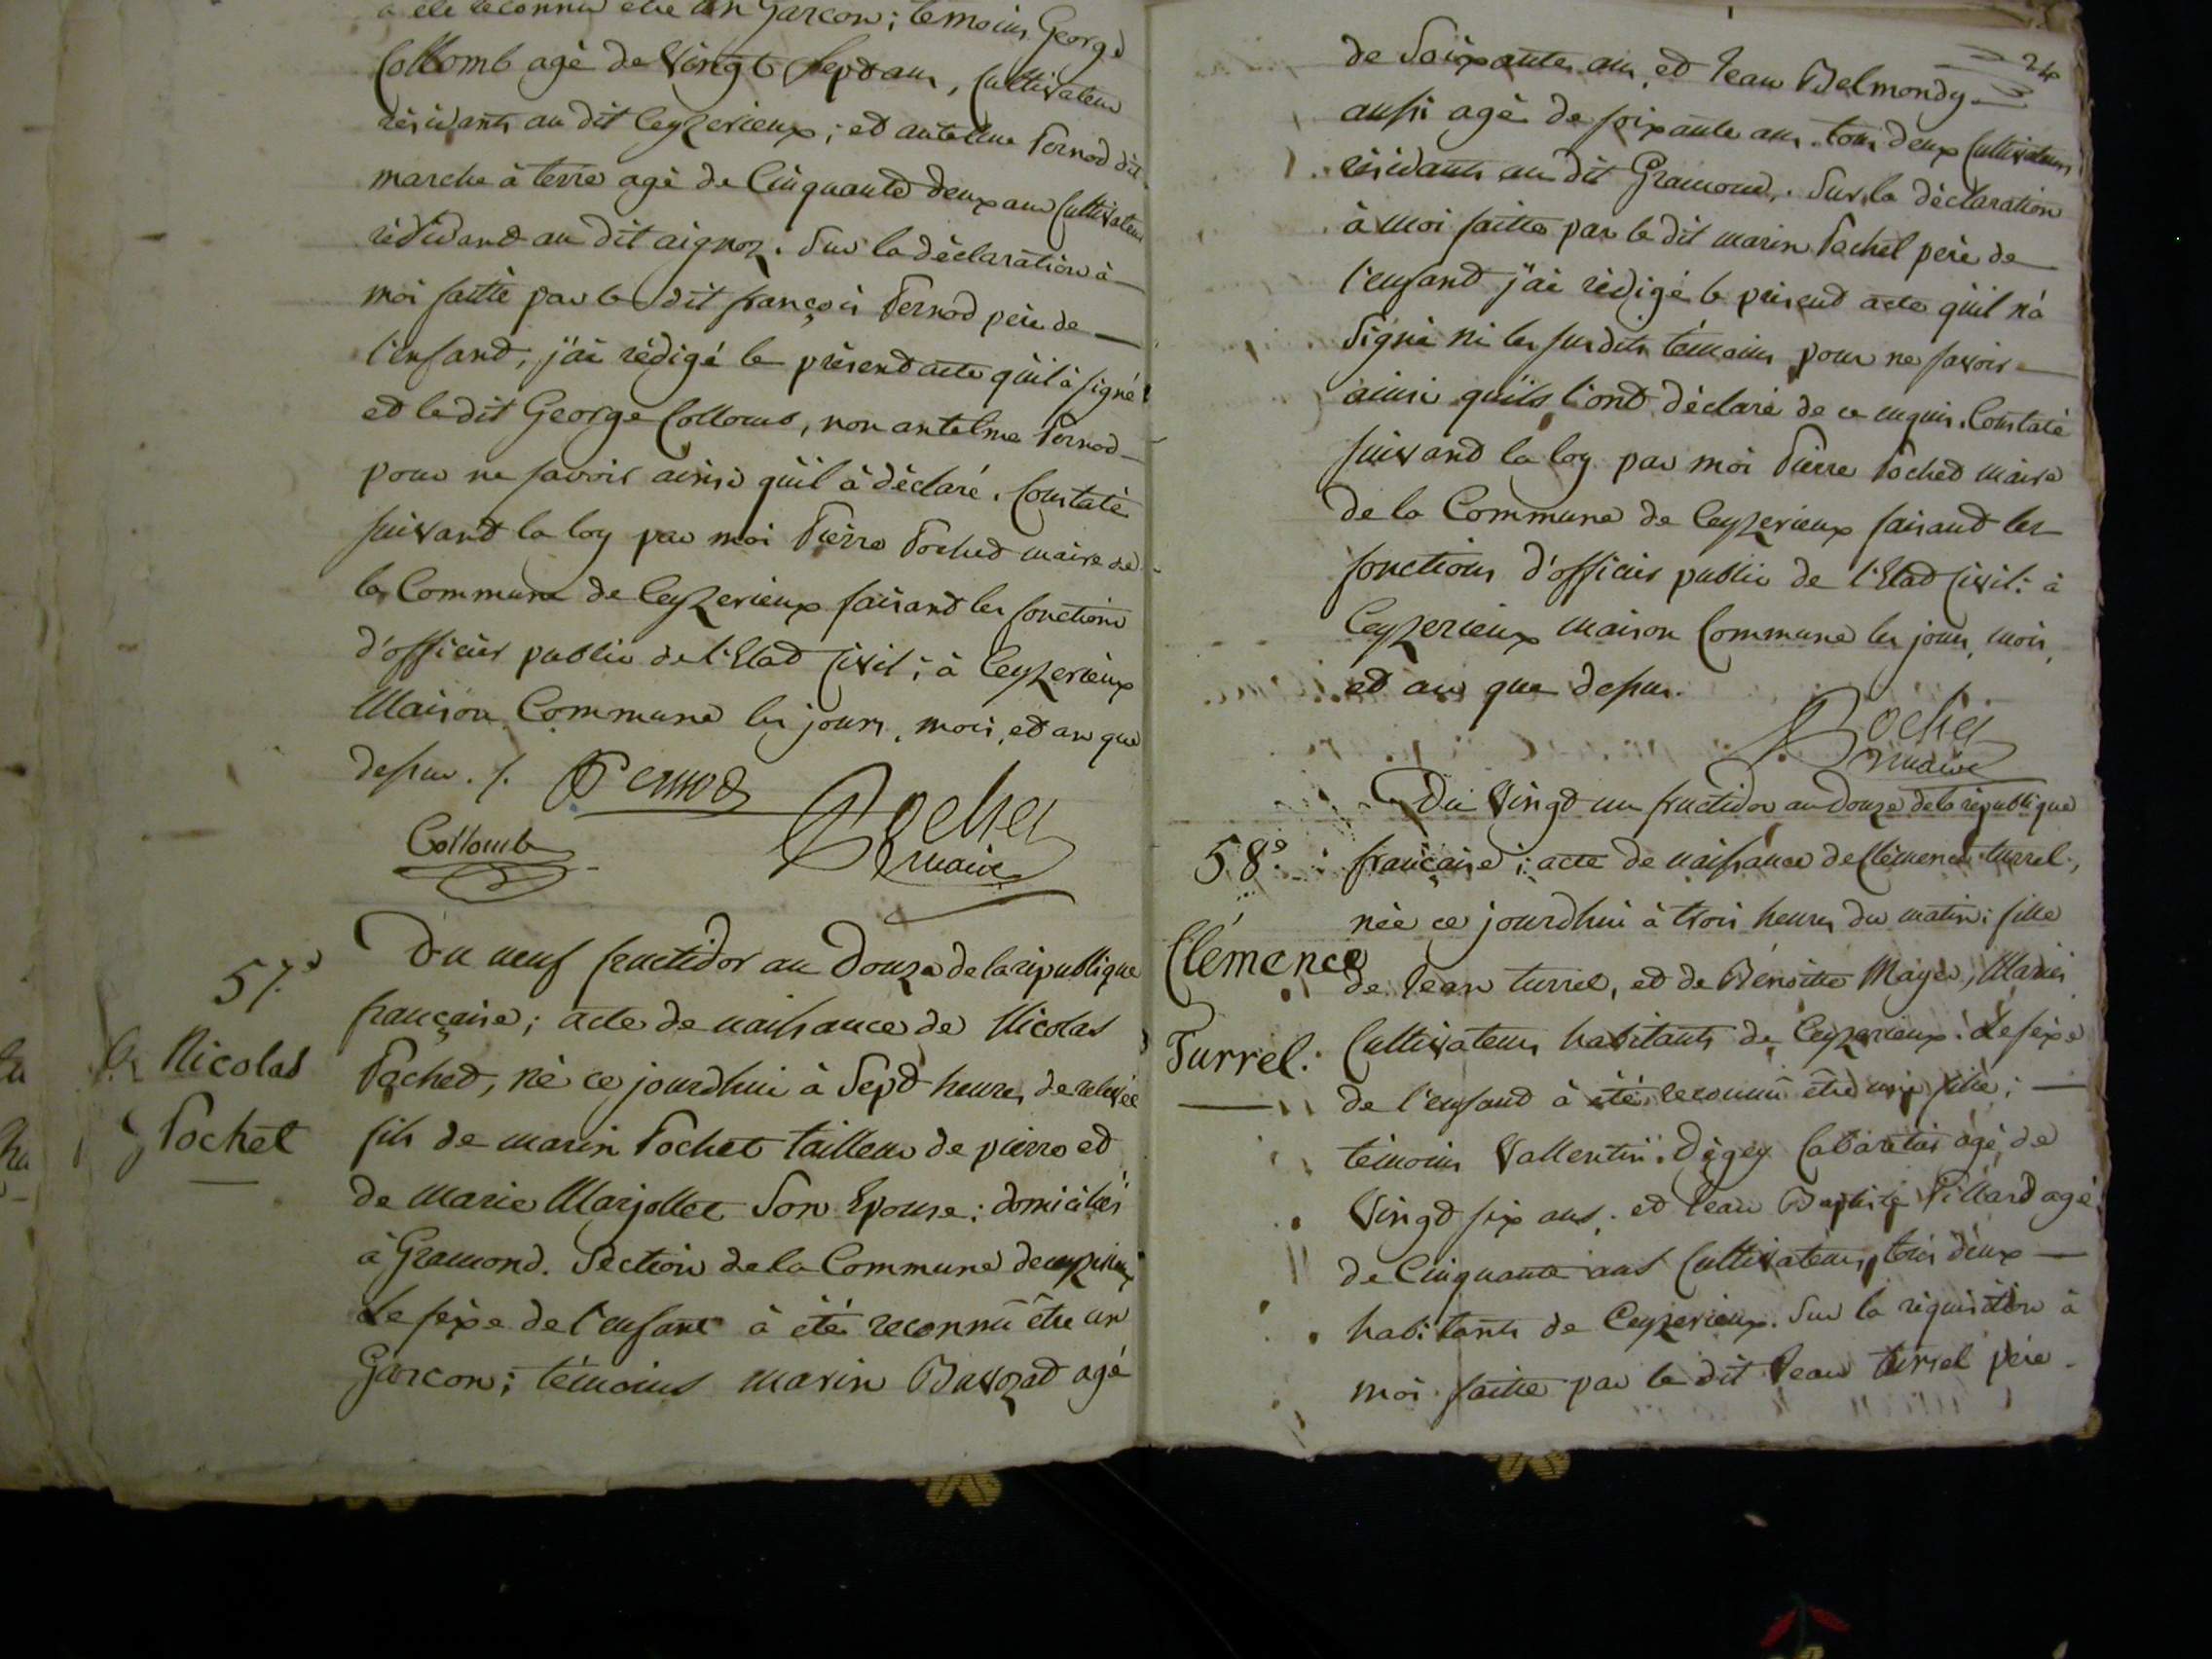 a été reconnu etre un Garcon; temoins George
Collomb agé de Vingt Sept ans, Cultivateur
résidants au dit Ceyzerieux; et antelme Pernod dit
marche à terre agé de Cinquante deux ans Cultivateur
résidant au dit aignoz. Sur la déclaration à
moi faitte par le dit françois Pernod père de
l'enfant, j'ai rédigé le présent acte qu'il à signé
et le dit George Collomb, non antelme Pernod
pour ne savoir ainsi qu'il à déclaré. Constaté
suivant la loy par moi Pierre Pochet maire de
la Commune de Ceyzerieux faisant les fonctions
d'officier public de l'Etat Civil; à Ceyzerieux
Maison Commune les jours, mois, et an que
dessus. /. Pernod
Collomb Pochet
maire
57.e
Nicolas
Pochet
Du neuf fructidor an Douze de la république
française; acte de naissance de Nicolas
Pochet, né ce jourdhui à Sept heures de relevée
fils de marin Pochet tailleur de pierre et
de Marie Marjollet Son Epouse; domiciliés
à Gramond. Section de la Commune de ceyzerieux
Le sexe de l'enfant à été reconnu être un
Garcon; témoins marin Bavozad agé
24
de Soixante ans, et Jean Belmondy
aussi agé de soixante ans. tous deux Cultivateurs
résidants au dit Gramond,. Sur la déclaration
à moi faitte par le dit marin Pochet père de
l'enfant j'ai rédigé le présent acte qu'il n'à
Signé ni les susdits témoins pour ne savoir
ainsi qu'ils l'ont déclaré de ce enquis. Constaté
suivant la loy par moi Pierre Pochet maire
de la Commune de Ceyzerieux faisant les
fonctions d'officier public de l'Etat Civil: à
Ceyzerieux maison Commune les jours, mois,
et an que dessus.
Pochet
maire
58.e
Clémence
Turrel.
Du Vingt un fructidor an Douze de la république
française; acte de naissance de Clémence turrel,
née ce jourdhui à trois heures du matin; fille
de Jean turrel, et de Benoitte Mayer, Mariés
Cultivateurs habitants de Ceyzerieux: Le sexe
de l'enfant à été reconnu être une fille;
témoins Vallentin Dégey Cabaretier agé de
Vingt six ans. et Jean Baptiste Pillard agé
de Cinquante ans Cultivateur, tous deux
habitants de Ceyzerieux. Sur la réquisition à
moi faitte par le dit Jean turrel père